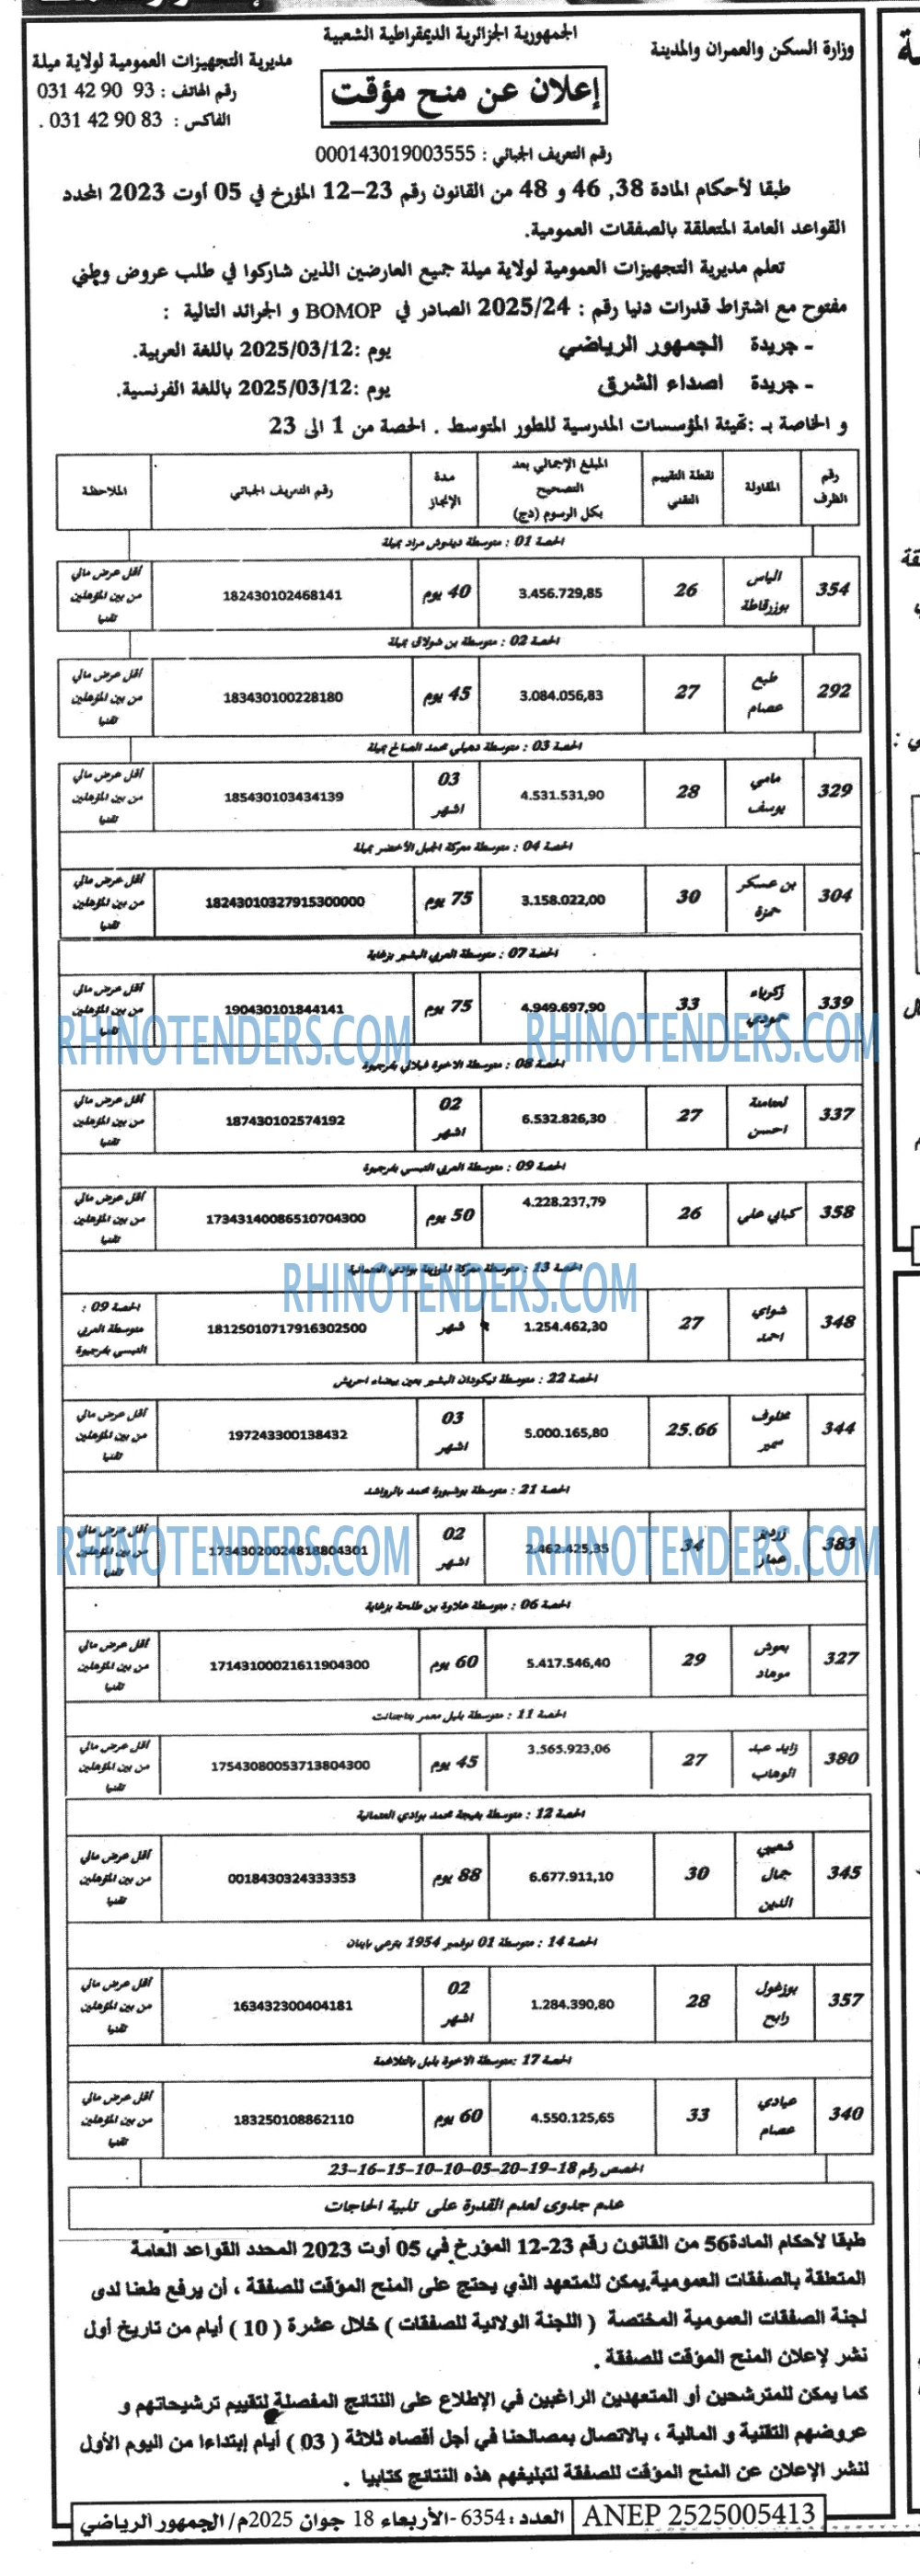 الجمهورية الجزائرية الديمقراطية الشعبية
وزارة السكن والعمران والمدينة
مديرية التجهيزات العمومية لولاية ميلة
رقم الهاتف : 93 90 42 031
الفاكس : 83 90 42 031 .
إعلان عن منح مؤقت
رقم التعريف الجبائي : 000143019003555
طبقا لأحكام المادة 38, 46 و 48 من القانون رقم 23-12 المؤرخ في 05 أوت 2023 المحدد
القواعد العامة المتعلقة بالصفقات العمومية.
تعلم مديرية التجهيزات العمومية لولاية ميلة جميع العارضين الذين شاركوا في طلب عروض وطني
مفتوح مع اشتراط قدرات دنيا رقم : 2025/24 الصادر في BOMOP و الجرائد التالية :
- جريدة الجمهور الرياضي يوم :2025/03/12 باللغة العربية.
- جريدة اصداء الشرق يوم :2025/03/12 باللغة الفرنسية.
و الخاصة بـ :تهيئة المؤسسات المدرسية للطور المتوسط . الحصة من 1 الى 23
رقم الظرف | المقاولة | نقطة التقييم التقني | المبلغ الإجمالي بعد التصحيح بكل الرسوم (دج) | مدة الإنجاز | رقم التعريف الجبائي | الملاحظة
الحصة 01 : متوسطة ديدوش مراد بميلة
354 | الياس بوزرقاطة | 26 | 3.456.729,85 | 40 يوم | 182430102468141 | أقل عرض مالي من بين المؤهلين تقنيا
الحصة 02 : متوسطة بن شولاق بميلة
292 | طبع عصام | 27 | 3.084.056,83 | 45 يوم | 183430100228180 | أقل عرض مالي من بين المؤهلين تقنيا
الحصة 03 : متوسطة دهيلي محمد الصالح بميلة
329 | مامي يوسف | 28 | 4.531.531,90 | 03 اشهر | 185430103434139 | أقل عرض مالي من بين المؤهلين تقنيا
الحصة 04 : متوسطة معركة الجبل الأخضر بميلة
304 | بن عسكر حمزة | 30 | 3.158.022,00 | 75 يوم | 18243010327915300000 | أقل عرض مالي من بين المؤهلين تقنيا
الحصة 07 : متوسطة العربي البشير بزغاية
339 | زكرياء حمودي | 33 | 4.949.697,90 | 75 يوم | 190430101844141 | أقل عرض مالي من بين المؤهلين تقنيا
RHINOTENDERS.COM RHINOTENDERS.COM
الحصة 08 : متوسطة الاخوة فيلالي بفرجيوة
337 | لعمامنة احسن | 27 | 6.532.826,30 | 02 اشهر | 187430102574192 | أقل عرض مالي من بين المؤهلين تقنيا
الحصة 09 : متوسطة العربي التبسي بفرجيوة
358 | كبابي علي | 26 | 4.228.237,79 | 50 يوم | 17343140086510704300 | أقل عرض مالي من بين المؤهلين تقنيا
الحصة 13 : متوسطة معركة بوادي العثمانية
RHINOTENDERS.COM
348 | شواي احمد | 27 | 1.254.462,30 | شهر | 18125010717916302500 | الحصة 09 : متوسطة العربي التبسي بفرجيوة
الحصة 22 : متوسطة تيكودان البشير بعين بيضاء احريش
344 | مخلوف سمير | 25.66 | 5.000.165,80 | 03 اشهر | 197243300138432 | أقل عرض مالي من بين المؤهلين تقنيا
الحصة 21 : متوسطة بوشبورة محمد بالرواشد
383 | عمار | 34 | 2.462.425,35 | 02 اشهر | 17343020024818804301 | أقل عرض مالي من بين المؤهلين تقنيا
RHINOTENDERS.COM RHINOTENDERS.COM
الحصة 06 : متوسطة علاوة بن طلحة بزغاية
327 | بعوش موهاد | 29 | 5.417.546,40 | 60 يوم | 17143100021611904300 | أقل عرض مالي من بين المؤهلين تقنيا
الحصة 11 : متوسطة بلبل معمر بتاجنانت
380 | زايد عبد الوهاب | 27 | 3.565.923,06 | 45 يوم | 17543080053713804300 | أقل عرض مالي من بين المؤهلين تقنيا
الحصة 12 : متوسطة محمد بوادي العثمانية
345 | شعيبي جمال الدين | 30 | 6.677.911,10 | 88 يوم | 0018430324333353 | أقل عرض مالي من بين المؤهلين تقنيا
الحصة 14 : متوسطة 01 نوفمبر 1954 بترعي باينان
357 | بوزغول رابح | 28 | 1.284.390,80 | 02 اشهر | 163432300404181 | أقل عرض مالي من بين المؤهلين تقنيا
الحصة 17 :متوسطة الاخوة بلبل بالتلاغمة
340 | عيادي عصام | 33 | 4.550.125,65 | 60 يوم | 183250108862110 | أقل عرض مالي من بين المؤهلين تقنيا
الحصص رقم 18-19-20-05-10-10-15-16-23
عدم جدوى لعدم القدرة على تلبية الحاجات
طبقا لأحكام المادة56 من القانون رقم 23-12 المؤرخ في 05 أوت 2023 المحدد القواعد العامة
المتعلقة بالصفقات العمومية.يمكن للمتعهد الذي يحتج على المنح المؤقت للصفقة ، أن يرفع طعنا لدى
لجنة الصفقات العمومية المختصة ( اللجنة الولائية للصفقات ) خلال عشرة ( 10 ) أيام من تاريخ أول
نشر لإعلان المنح المؤقت للصفقة .
كما يمكن للمترشحين أو المتعهدين الراغبين في الإطلاع على النتائج المفصلة لتقييم ترشيحاتهم و
عروضهم التقنية و المالية ، بالاتصال بمصالحنا في أجل أقصاه ثلاثة ( 03 ) أيام إبتداءا من اليوم الأول
لنشر الإعلان عن المنح المؤقت للصفقة لتبليغهم هذه النتائج كتابيا .
ANEP 2525005413 | العدد : 6354 -الأربعاء 18 جوان 2025م/ الجمهور الرياضي